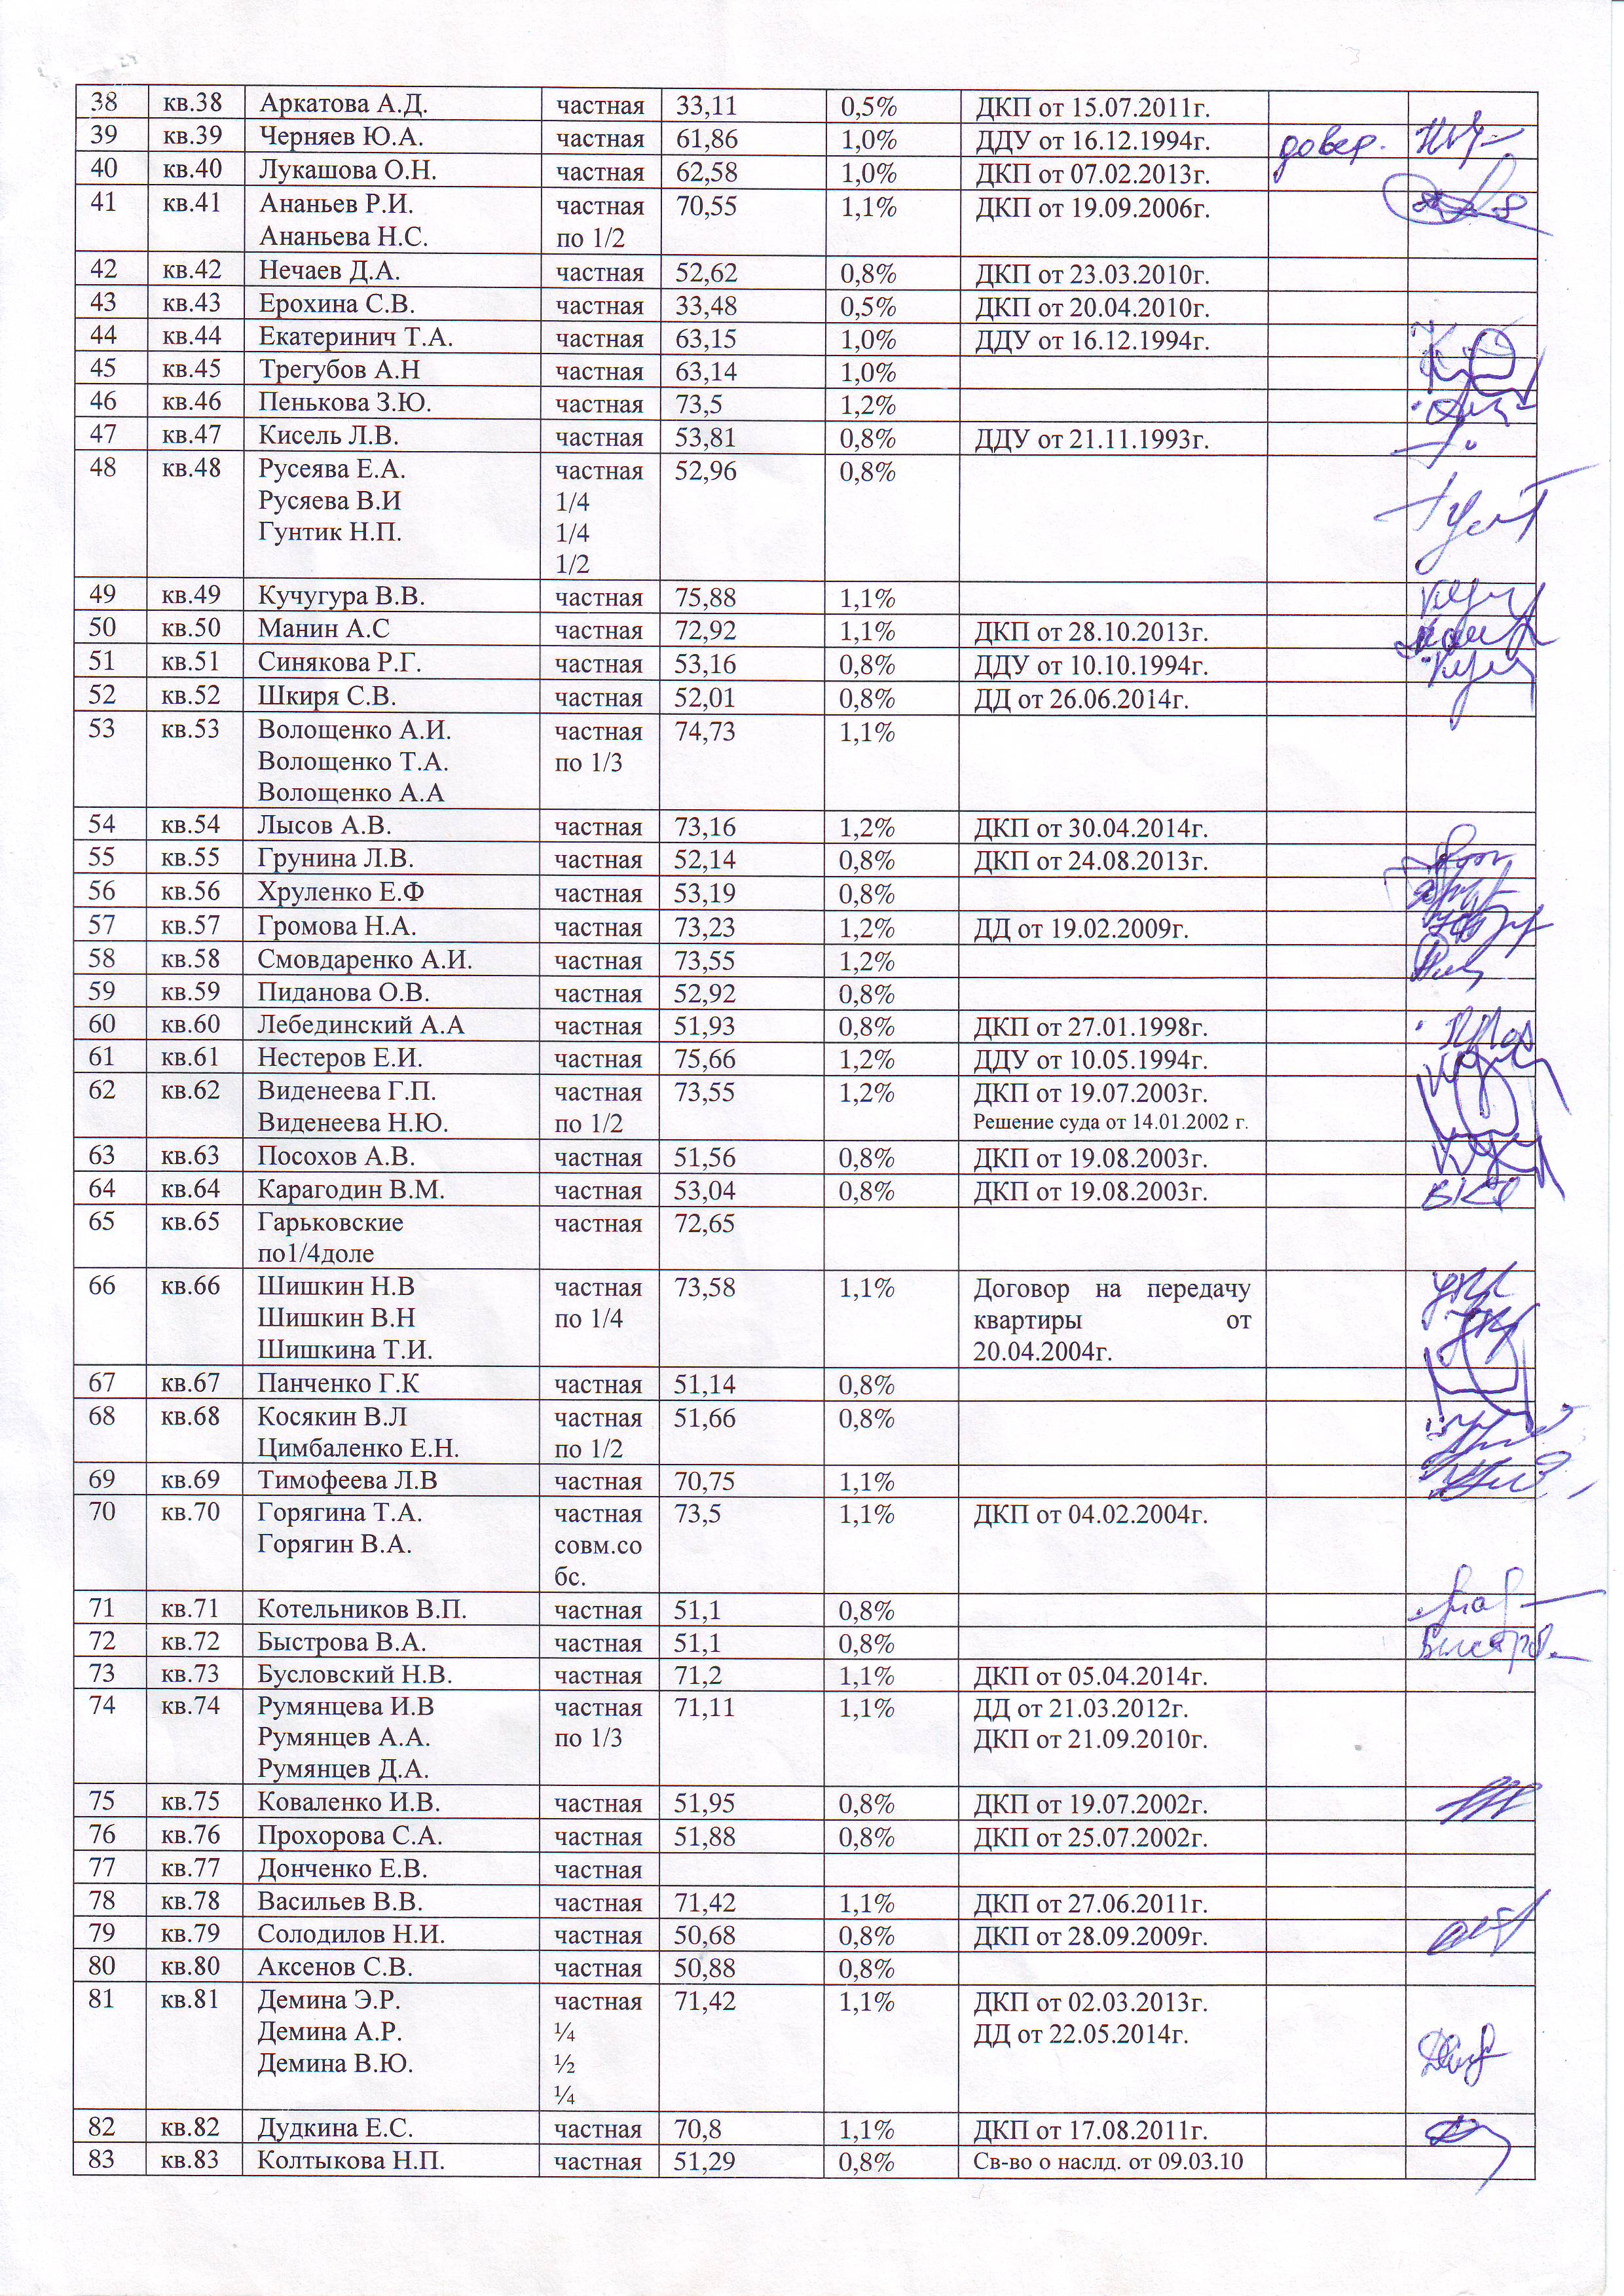 38 кв.38 Аркатова А.Д. частная 33,11 0,5% ДКП от 15.07.2011г.
39 кв.39 Черняев Ю.А. частная 61,86 1,0% ДДУ от 16.12.1994г. довер.
40 кв.40 Лукашова О.Н. частная 62,58 1,0% ДКП от 07.02.2013г.
41 кв.41 Ананьев Р.И. частная 70,55 1,1% ДКП от 19.09.2006г.
Ананьева Н.С. по 1/2
42 кв.42 Нечаев Д.А. частная 52,62 0,8% ДКП от 23.03.2010г.
43 кв.43 Ерохина С.В. частная 33,48 0,5% ДКП от 20.04.2010г.
44 кв.44 Екатеринич Т.А. частная 63,15 1,0% ДДУ от 16.12.1994г.
45 кв.45 Трегубов А.Н частная 63,14 1,0%
46 кв.46 Пенькова З.Ю. частная 73,5 1,2%
47 кв.47 Кисель Л.В. частная 53,81 0,8% ДДУ от 21.11.1993г.
48 кв.48 Русеява Е.А. частная 52,96 0,8%
Русяева В.И 1/4
Гунтик Н.П. 1/4
1/2
49 кв.49 Кучугура В.В. частная 75,88 1,1%
50 кв.50 Манин А.С частная 72,92 1,1% ДКП от 28.10.2013г.
51 кв.51 Синякова Р.Г. частная 53,16 0,8% ДДУ от 10.10.1994г.
52 кв.52 Шкиря С.В. частная 52,01 0,8% ДД от 26.06.2014г.
53 кв.53 Волощенко А.И. частная 74,73 1,1%
Волощенко Т.А. по 1/3
Волощенко А.А
54 кв.54 Лысов А.В. частная 73,16 1,2% ДКП от 30.04.2014г.
55 кв.55 Грунина Л.В. частная 52,14 0,8% ДКП от 24.08.2013г.
56 кв.56 Хруленко Е.Ф частная 53,19 0,8%
57 кв.57 Громова Н.А. частная 73,23 1,2% ДД от 19.02.2009г.
58 кв.58 Смовдаренко А.И. частная 73,55 1,2%
59 кв.59 Пиданова О.В. частная 52,92 0,8%
60 кв.60 Лебединский А.А частная 51,93 0,8% ДКП от 27.01.1998г.
61 кв.61 Нестеров Е.И. частная 75,66 1,2% ДДУ от 10.05.1994г.
62 кв.62 Виденеева Г.П. частная 73,55 1,2% ДКП от 19.07.2003г.
Виденеева Н.Ю. по 1/2 Решение суда от 14.01.2002 г.
63 кв.63 Посохов А.В. частная 51,56 0,8% ДКП от 19.08.2003г.
64 кв.64 Карагодин В.М. частная 53,04 0,8% ДКП от 19.08.2003г.
65 кв.65 Гарьковские частная 72,65
по1/4доле
66 кв.66 Шишкин Н.В частная 73,58 1,1% Договор на передачу
Шишкин В.Н по 1/4 квартиры от
Шишкина Т.И. 20.04.2004г.
67 кв.67 Панченко Г.К частная 51,14 0,8%
68 кв.68 Косякин В.Л частная 51,66 0,8%
Цимбаленко Е.Н. по 1/2
69 кв.69 Тимофеева Л.В частная 70,75 1,1%
70 кв.70 Горягина Т.А. частная 73,5 1,1% ДКП от 04.02.2004г.
Горягин В.А. совм.со
бс.
71 кв.71 Котельников В.П. частная 51,1 0,8%
72 кв.72 Быстрова В.А. частная 51,1 0,8%
73 кв.73 Бусловский Н.В. частная 71,2 1,1% ДКП от 05.04.2014г.
74 кв.74 Румянцева И.В частная 71,11 1,1% ДД от 21.03.2012г.
Румянцев А.А. по 1/3 ДКП от 21.09.2010г.
Румянцев Д.А.
75 кв.75 Коваленко И.В. частная 51,95 0,8% ДКП от 19.07.2002г.
76 кв.76 Прохорова С.А. частная 51,88 0,8% ДКП от 25.07.2002г.
77 кв.77 Донченко Е.В. частная
78 кв.78 Васильев В.В. частная 71,42 1,1% ДКП от 27.06.2011г.
79 кв.79 Солодилов Н.И. частная 50,68 0,8% ДКП от 28.09.2009г.
80 кв.80 Аксенов С.В. частная 50,88 0,8%
81 кв.81 Демина Э.Р. частная 71,42 1,1% ДКП от 02.03.2013г.
Демина А.Р. ¼ ДД от 22.05.2014г.
Демина В.Ю. ½
¼
82 кв.82 Дудкина Е.С. частная 70,8 1,1% ДКП от 17.08.2011г.
83 кв.83 Колтыкова Н.П. частная 51,29 0,8% Св-во о наслд. от 09.03.10